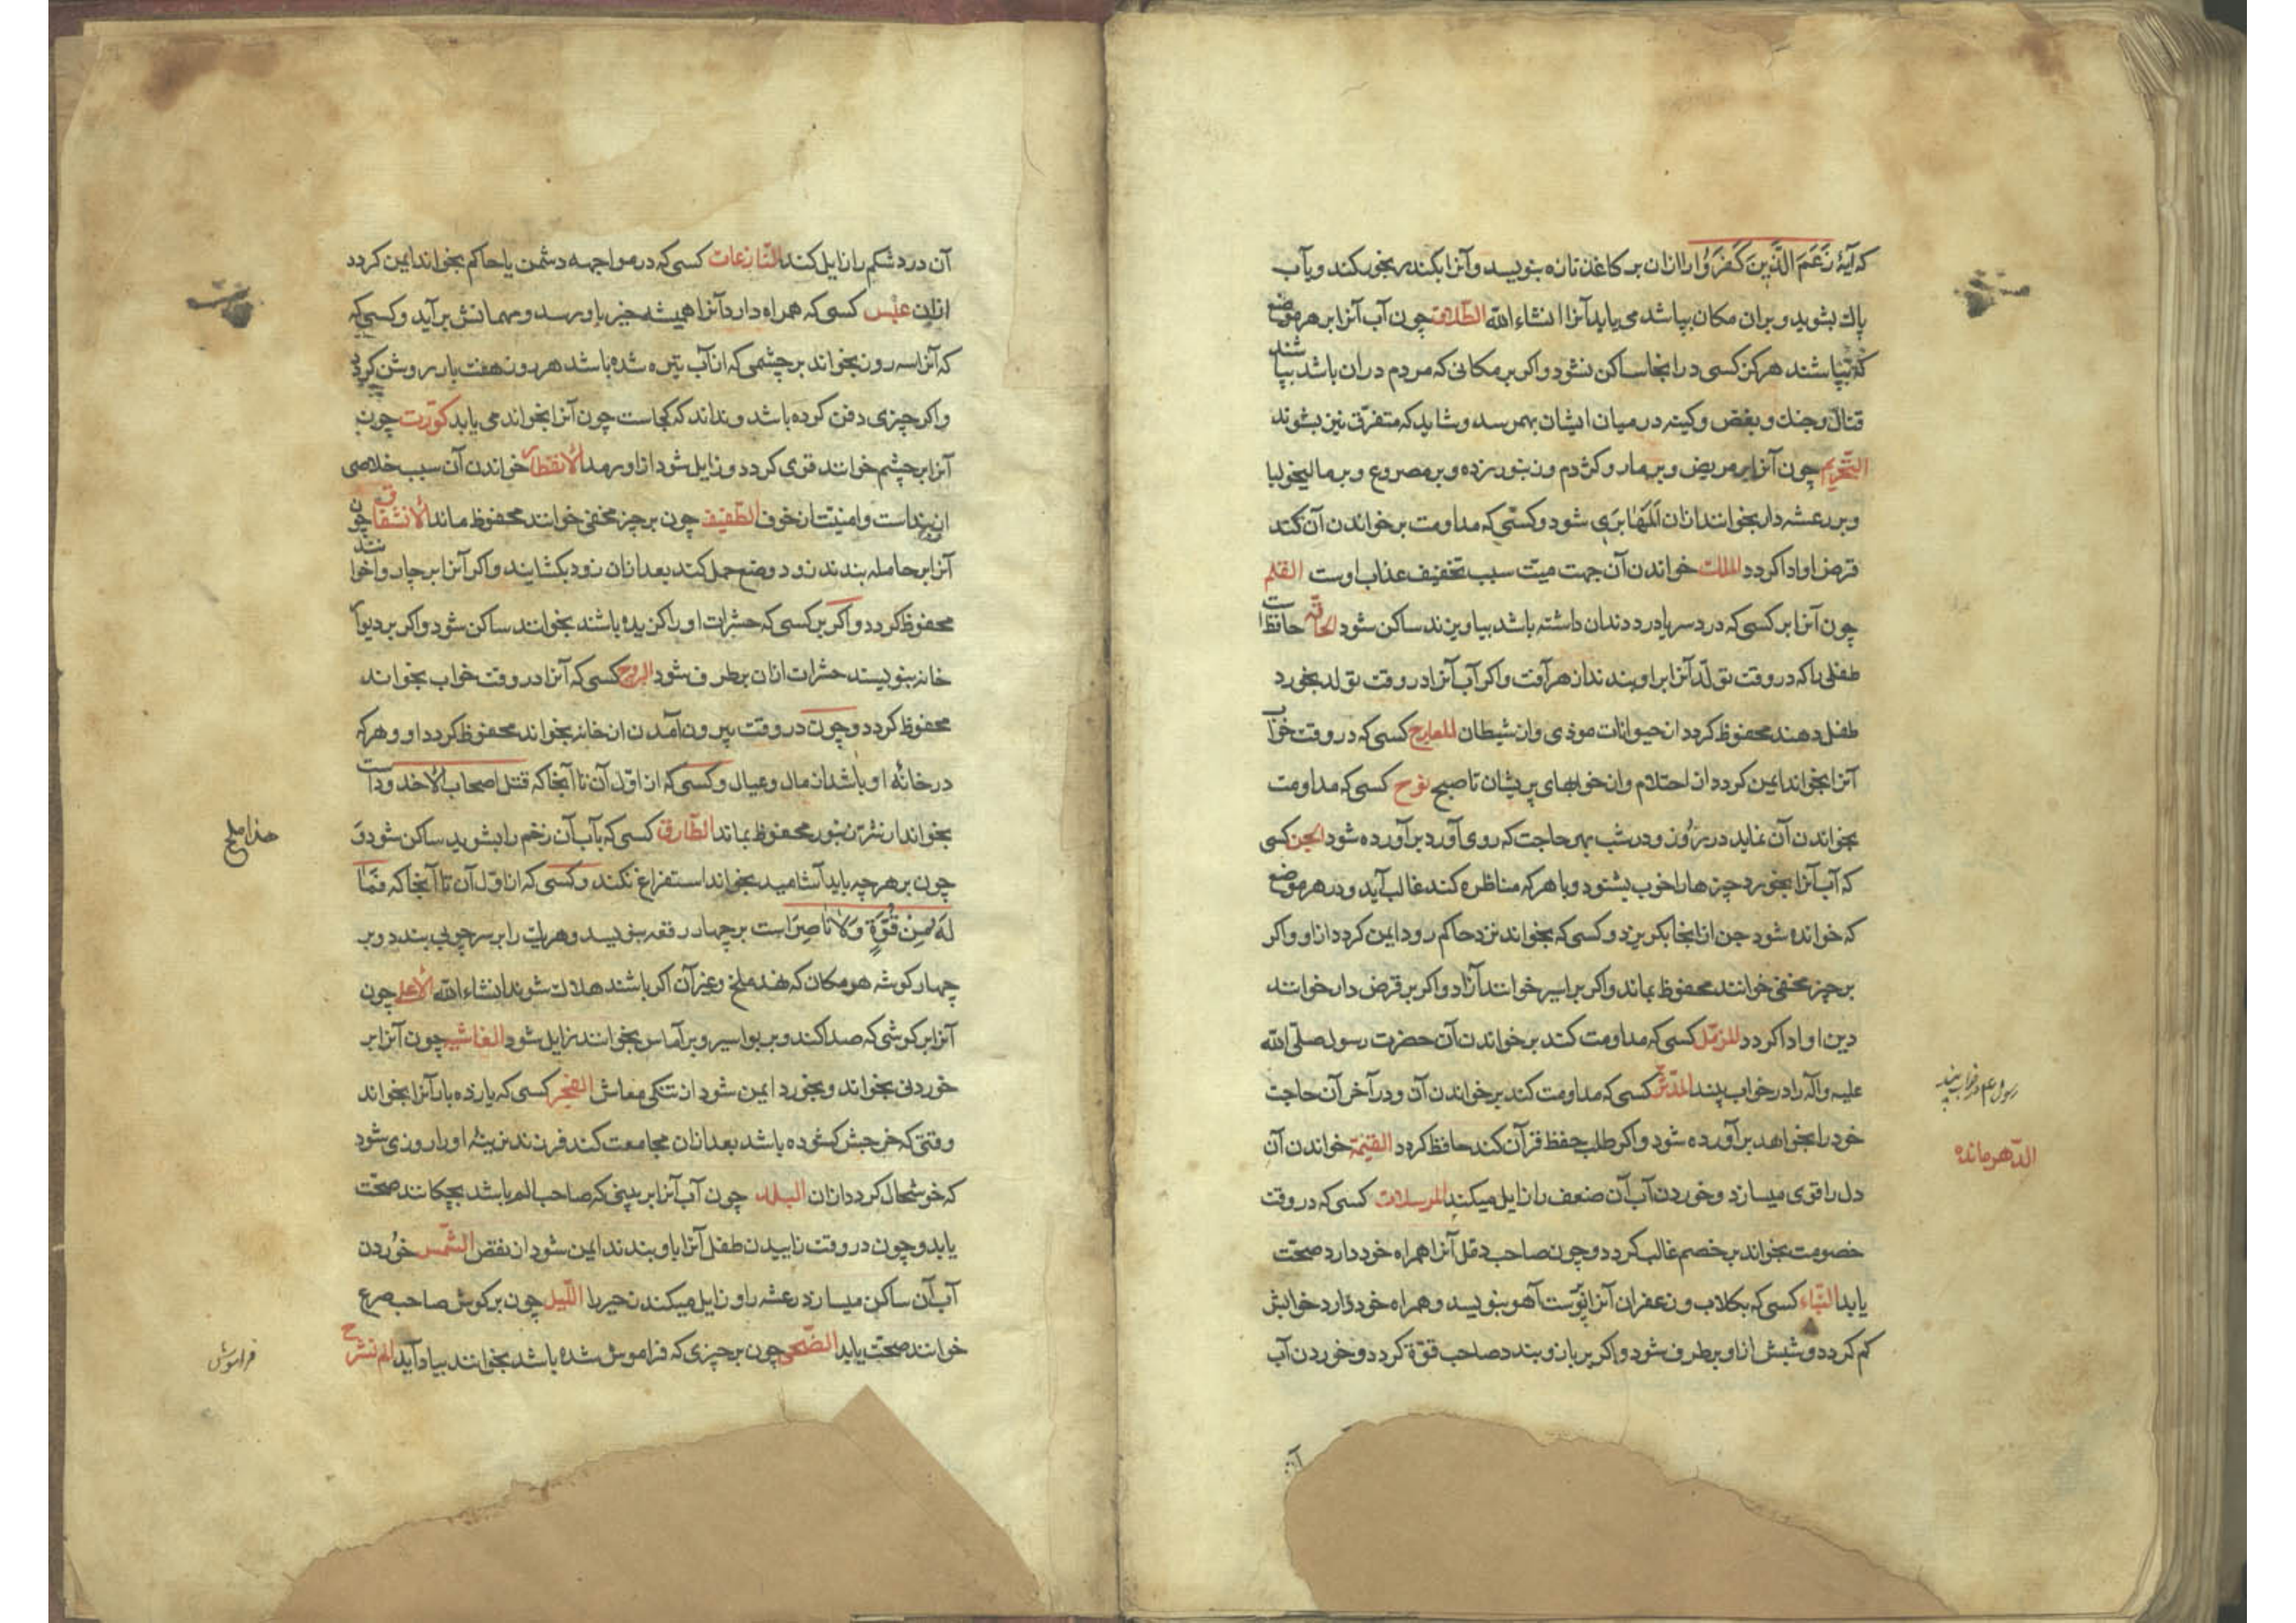 که آیهٔ زَعَمَ الَّذِینَ کَفَرُوا را ازان بر کاغذ تازه بنویسد و آنرا بکند بخور کند و یا آب
پاك بشوید و بران مکان بپاشد می یابد آنرا انشاء الله الطّلاق چون آب آنرا بر هر موضع
که بپاشند هرکز کسی درانجا ساکن نشود و اکر بر مکانی که مردم دران باشد بپاشند
قتال و جنك و بغض و کینه در میان ایشان بهمرسد و شاید که متفرّق نیز بشوند
التّحریم چون آنرا بر مریض و بر مار و کژدم و زنبور زده و بر مصروع و بر مالیخولیا
و بر رعشه دار بخوانند ازان بری شود و کسی که مداومت بر خواندن آن کند
قرض او ادا کردد الملك خواندن آن جهت میّت سبب تخفیف عذاب اوست القلم
چون آنرا بر کسی که درد سر یا درد دندان داشته باشد بیاویزند ساکن شود الحاقّه حافظ است
طفلی را که در وقت تولّد آنرا بر او بندند از هر آفت و اکر آب آنرا در وقت تولد بخورد
طفل دهند محفوظ کردد از حیوانات موذی و از شیطان المعارج کسی که در وقت خواب
آنرا بخواند ایمن کردد از احتلام و از خوابهای پریشان تا صبح نوح کسی که مداومت
بخواندن آن نماید در روز و در شب بهر حاجت که روی آورد برآورده شود الجن کسی
که آب آنرا بخورد چیزها را خوب بشنود و با هر که مناظره کند غالب آید و در هر موضع
که خوانده شود جن از انجا بکریزد و کسی که بخواند نزد حاکم رود ایمن کردد ازاو و اکر
بر چیز مخفی خوانند محفوظ بماند و اکر بر اسیر خوانند آزاد و اکر بر قرض دار خوانند
دین او ادا کردد المزّمّل کسی که مداومت کند بر خواندن آن حضرت رسول صلّی الله
علیه و آله را در خواب بیند المدّثّر کسی که مداومت کند بر خواندن آن و در آخر آن حاجت
خود را بخواهد برآورده شود و اکر طلب حفظ قرآن کند حافظ کردد القیمة خواندن آن
دل را قوی میسازد و خوردن آب آن ضعف را زایل میکند المرسلات کسی که در وقت
خصومت بخواند بر خصم غالب کردد و چون صاحب دمل آنرا همراه خود دارد صحّت
یابد النّباء کسی که بکلاب و زعفران آنرا بپوست آهو بنویسد و همراه خود دارد خوابش
کم کردد و شبش ازاو برطرف شود و اکر بر بازو بندد صاحب قوّة کردد و خوردن آب
رسول ع م در خواب بیند
الدّهر مانده
آن
آن درد شکم را زایل کند النّازعات کسی که در مواجهه دشمن یا حاکم بخواند ایمن کردد
ازان عبس کسی که همراه دارد آنرا همیشه خیر باو رسد و مهمانش برآید و کسی که
که آنرا سه روز بخواند بر چشمی که از آب تیره شده باشد هر روز هفت بار روشن کردد
و اکر چیزی دفن کرده باشد و نداند که کجاست چون آنرا بخواند می یابد کوّرت چون
آنرا بر چشم خوانند قوی کردد و زایل شود ازاو رمد الانفطار خواندن آن سبب خلاصی
از بنداست و امنیّت از خوف التّطفیف چون بر چیز مخفی خوانند محفوظ ماند الانشقاق چون
آنرا بر حامله بندند زود وضع حمل کند بعد ازان زود بکشایند و اکر آنرا بر چاروا خوانند
محفوظ کردد و اکر بر کسی که حشرات او را کزیده باشند بخوانند ساکن شود و اکر بر دیوار
خانه بنویسند حشرات ازان برطرف شود البروج کسی که آنرا در وقت خواب بخواند
محفوظ کردد و چون در وقت بیرون آمدن از خانه بخواند محفوظ کردد او و هر که
در خانهٔ او باشد از مال و عیال و کسی که از اوّل آن تا آنجا که قتل اصحاب الاخدوداست
بخواند از شرّ زنبور محفوظ بماند الطّارق کسی که بآب آن زخم را بشوید ساکن شود و
چون بر هرچه باید آشامید بخواند استفراغ نکند و کسی که از اوّل آن تا آنجا که فَمَا
لَهُ مِن قُوَّةٍ وَلَا نَاصِرٍاست بر چهار رقعه بنویسد و هریك را بر سر چوبی بندد و بر
چهار کوشه هر مکان که ملخ و غیر آن اکر باشند هلاك شوند انشاء الله الاعلی چون
آنرا بر کوشی که صدا کند و بر بواسیر و بر آماس بخوانند زایل شود الغاشیه چون آنرا بر
خوردنی بخواند و بخورد ایمن شود از تنکی معاش الفجر کسی که یازده بار آنرا بخواند
وقتی که باشد بعد ازان مجامعت کند فرزند نرینه او را روزی شود
که خوشحال کردد ازان البلد چون آب آنرا بر بینی که صاحب الم باشد بچکانند صحّت
یابد و چون در وقت زاییدن طفل آنرا باو بندند ایمن شود از نقص الشّمس خوردن
آب آن ساکن میسازد رعشه را و زایل میکند زحیر را اللّیل چون بر کوش صاحب صرع
خوانند صحّت یابد الضّحی چون بر چیزی که فراموش شده باشد بخوانند بیاد آید الم نشرح
فراموشی